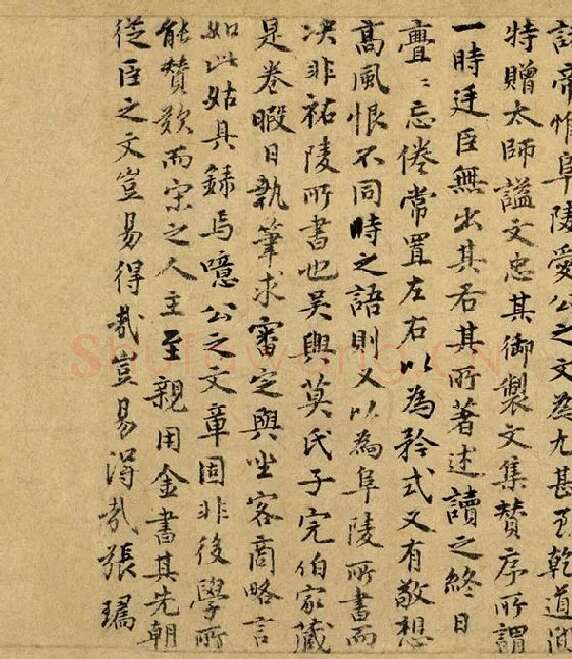 諸帝惟阜陵愛公之文為尤甚至乾道間
特贈太師謚文忠其御製文集贊序所謂
一時廷臣無出其右其所著述讀之終日
亹〻忘倦常置左右以為矜式又有敬想
高風恨不同時之語則又以為阜陵所書而
决非祐陵所書也吴興莫氏子完伯家藏
是卷暇日執筆求審定與坐客商略言
如此姑具錄焉噫公之文章固非後學所
能贊歎而宋之人主至親用金書其先朝
從臣之文豈易得哉豈易得哉張瑀